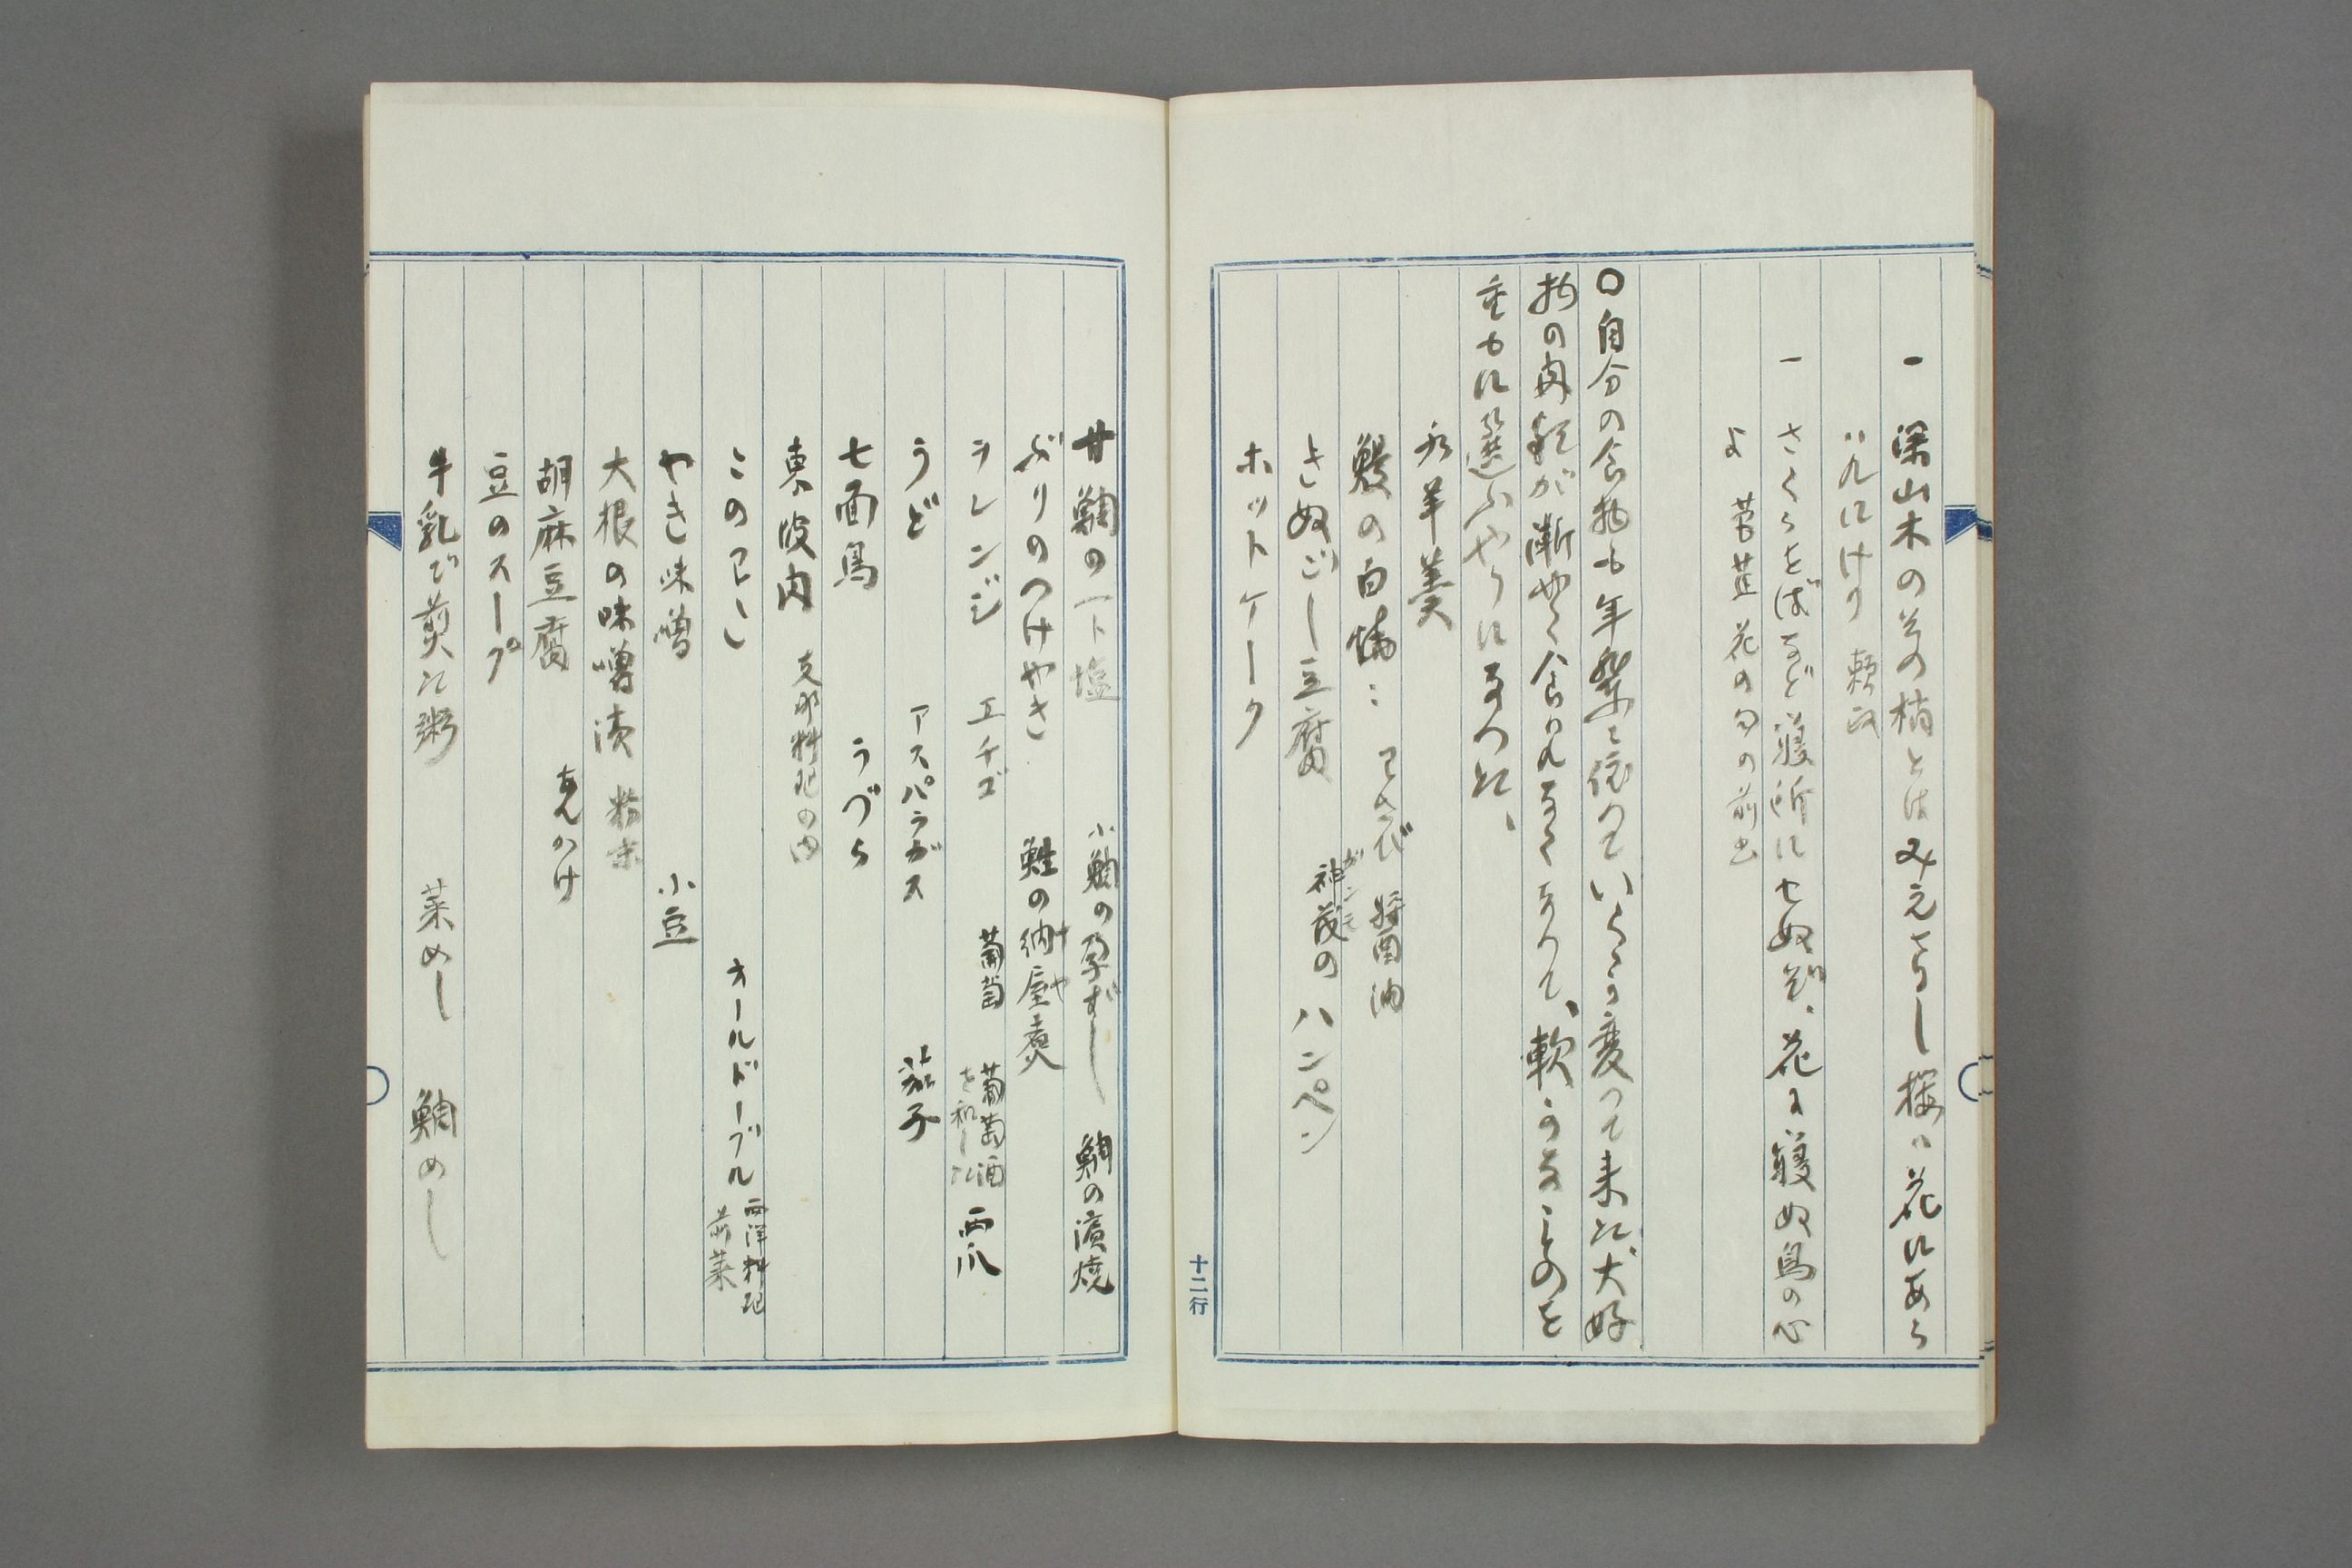 一 深山木のその梢とはみえざらし桜は花にあら
はれにけり 頼政
一 さくらをばなど寝所にせぬぞ、花に寝ぬ鳥の心
よ 芭蕉 花の句の前出
〇自分の食物も年齢に依つていくらか変つて来た、大好
物の肉類が漸やく食はれなくなりて、軟かなものを
重もに選ふやうになつた、
水羊羹
鰻の白焼: わさび 醤油
きぬごし豆腐 神茂のハンペン
カンモ
ホットケーク
十二行
甘鯛の一ト塩 小鯛の孕ずし 鯛の濱焼
ぶりのつけやき 鮭の納屋煮
ナヤ
ヲレンジ エチゴ 葡萄 葡萄酒を和した 西瓜
うど アスパラガス 茄子
七面鳥 うづら
東坡肉 支那料理の内
このわた オールドーブル 西洋料理前菜
やき味噌 小豆
大根の味噌漬 粉末
胡麻豆腐 あんかけ
豆のスープ
牛乳で煎た粥 菜めし 鯛めし